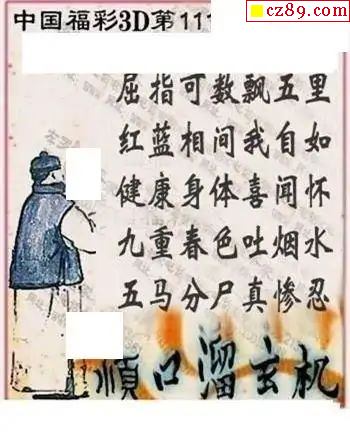 cz89.com
中国福彩3D第111
屈指可数飘五里
红蓝相间我自如
健康身体喜闻怀
九重春色吐烟水
五马分尸真惨忍
顺口溜玄机